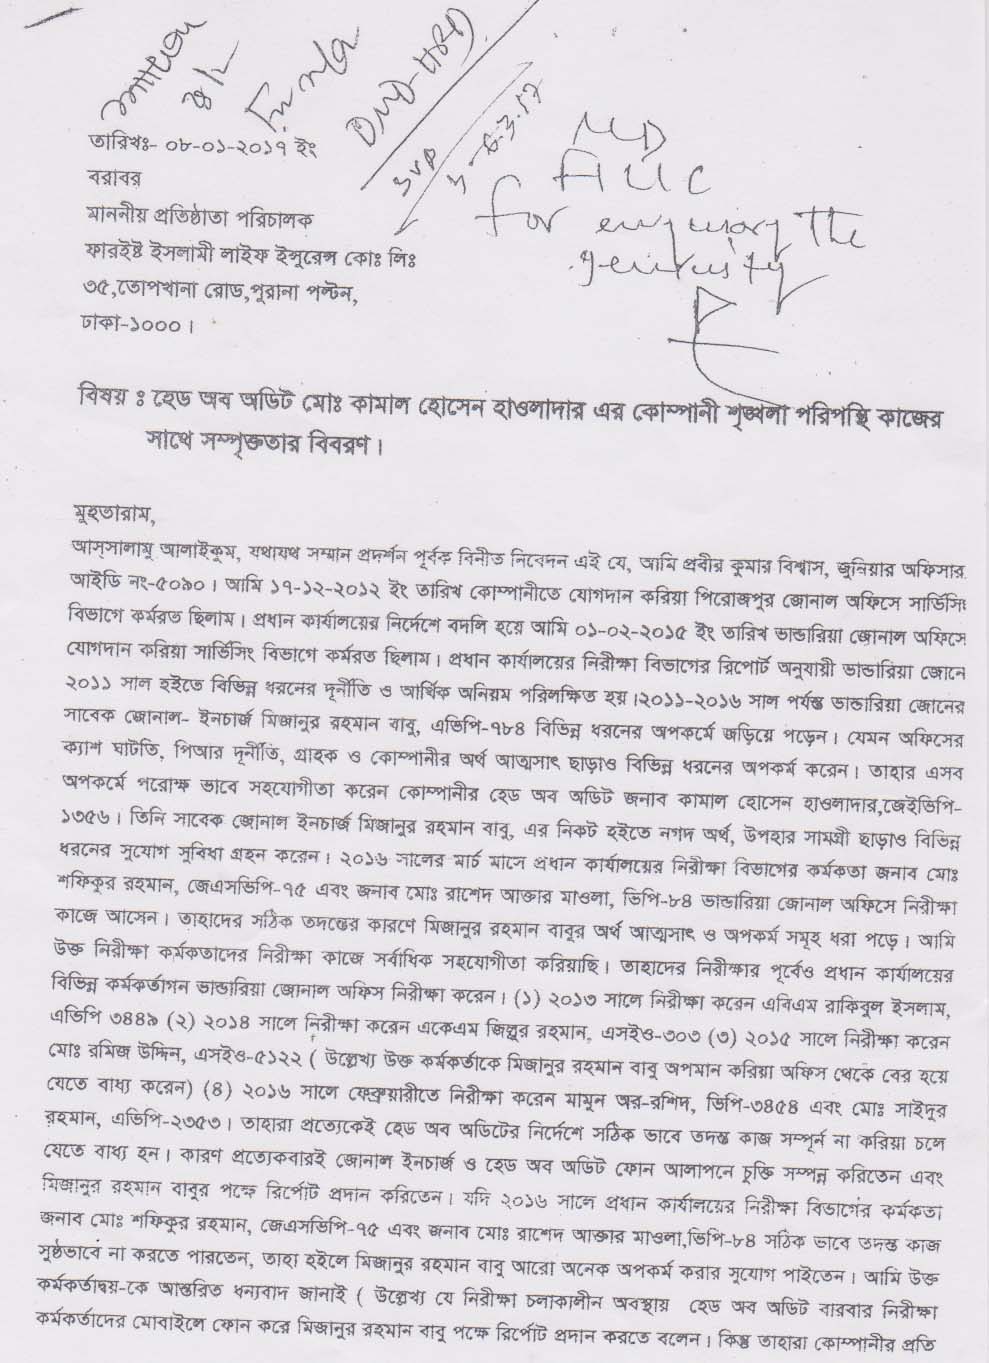 SVP
5.3.17
MD
AUC
for enquiry the
তারিখঃ- ০৮-০১-২০১৭ ইং
বরাবর
মাননীয় প্রতিষ্ঠাতা পরিচালক
ফারইষ্ট ইসলামী লাইফ ইন্সুরেন্স কোঃ লিঃ
৩৫,তোপখানা রোড,পুরানা পল্টন,
ঢাকা-১০০০।
বিষয় ঃ হেড অব অডিট মোঃ কামাল হোসেন হাওলাদার এর কোম্পানী শৃঙ্খলা পরিপন্থি কাজের
সাথে সম্পৃক্ততার বিবরণ।
মুহতারাম,
আস্সালামু আলাইকুম, যথাযথ সম্মান প্রদর্শন পূর্বক বিনীত নিবেদন এই যে, আমি প্রবীর কুমার বিশ্বাস, জুনিয়ার অফিসার
আইডি নং-৫০৯০। আমি ১৭-১২-২০১২ ইং তারিখ কোম্পানীতে যোগদান করিয়া পিরোজপুর জোনাল অফিসে সার্ভিসিং
বিভাগে কর্মরত ছিলাম। প্রধান কার্যালয়ের নির্দেশে বদলি হয়ে আমি ০১-০২-২০১৫ ইং তারিখ ভান্ডারিয়া জোনাল অফিসে
যোগদান করিয়া সার্ভিসিং বিভাগে কর্মরত ছিলাম। প্রধান কার্যালয়ের নিরীক্ষা বিভাগের রিপোর্ট অনুযায়ী ভান্ডারিয়া জোনে
২০১১ সাল হইতে বিভিন্ন ধরনের দূর্নীতি ও আর্থিক অনিয়ম পরিলক্ষিত হয়।২০১১-২০১৬ সাল পর্যন্ত ভান্ডারিয়া জোনের
সাবেক জোনাল- ইনচার্জ মিজানুর রহমান বাবু, এভিপি-৭৮৪ বিভিন্ন ধরনের অপকর্মে জড়িয়ে পড়েন। যেমন অফিসের
ক্যাশ ঘাটতি, পিআর দূর্নীতি, গ্রাহক ও কোম্পানীর অর্থ আত্মসাৎ ছাড়াও বিভিন্ন ধরনের অপকর্ম করেন। তাহার এসব
অপকর্মে পরোক্ষ ভাবে সহযোগীতা করেন কোম্পানীর হেড অব অডিট জনাব কামাল হোসেন হাওলাদার,জেইভিপি-
১৩৫৬। তিনি সাবেক জোনাল ইনচার্জ মিজানুর রহমান বাবু, এর নিকট হইতে নগদ অর্থ, উপহার সামগ্রী ছাড়াও বিভিন্ন
ধরনের সুযোগ সুবিধা গ্রহন করেন। ২০১৬ সালের মার্চ মাসে প্রধান কার্যালয়ের নিরীক্ষা বিভাগের কর্মকতা জনাব মোঃ
শফিকুর রহমান, জেএসভিপি-৭৫ এবং জনাব মোঃ রাশেদ আক্তার মাওলা, ভিপি-৮৪ ভান্ডারিয়া জোনাল অফিসে নিরীক্ষা
কাজে আসেন। তাহাদের সঠিক তদন্তের কারণে মিজানুর রহমান বাবুর অর্থ আত্মসাৎ ও অপকর্ম সমূহ ধরা পড়ে। আমি
উক্ত নিরীক্ষা কর্মকতাদের নিরীক্ষা কাজে সর্বাধিক সহযোগীতা করিয়াছি। তাহাদের নিরীক্ষার পূর্বেও প্রধান কার্যালয়ের
বিভিন্ন কর্মকর্তাগন ভান্ডারিয়া জোনাল অফিস নিরীক্ষা করেন। (১) ২০১৩ সালে নিরীক্ষা করেন এবিএম রাকিবুল ইসলাম,
এভিপি ৩৪৪৯ (২) ২০১৪ সালে নিরীক্ষা করেন একেএম জিল্লুর রহমান, এসইও-৩০৩ (৩) ২০১৫ সালে নিরীক্ষা করেন
মোঃ রমিজ উদ্দিন, এসইও-৫১২২ ( উল্লেখ্য উক্ত কর্মকর্তাকে মিজানুর রহমান বাবু অপমান করিয়া অফিস থেকে বের হয়ে
যেতে বাধ্য করেন) (৪) ২০১৬ সালে ফেব্রুয়ারীতে নিরীক্ষা করেন মামুন অর-রশিদ, ভিপি-৩৪৫৪ এবং মোঃ সাইদুর
রহমান, এভিপি-২৩৫৩। তাহারা প্রত্যেকেই হেড অব অডিটের নির্দেশে সঠিক ভাবে তদন্ত কাজ সম্পূর্ন না করিয়া চলে
যেতে বাধ্য হন। কারণ প্রত্যেকবারই জোনাল ইনচার্জ ও হেড অব অডিট ফোন আলাপনে চুক্তি সম্পন্ন করিতেন এবং
মিজানুর রহমান বাবুর পক্ষে রির্পোট প্রদান করিতেন। যদি ২০১৬ সালে প্রধান কার্যালয়ের নিরীক্ষা বিভাগের কর্মকতা
জনাব মোঃ শফিকুর রহমান, জেএসভিপি-৭৫ এবং জনাব মোঃ রাশেদ আক্তার মাওলা,ভিপি-৮৪ সঠিক ভাবে তদন্ত কাজ
সুষ্ঠভাবে না করতে পারতেন, তাহা হইলে মিজানুর রহমান বাবু আরো অনেক অপকর্ম করার সুযোগ পাইতেন। আমি উক্ত
কর্মকর্তাদ্বয়-কে আন্তরিত ধন্যবাদ জানাই ( উল্লেখ্য যে নিরীক্ষা চলাকালীন অবস্থায় হেড অব অডিট বারবার নিরীক্ষা
কর্মকর্তাদের মোবাইলে ফোন করে মিজানুর রহমান বাবু পক্ষে রির্পোট প্রদান করতে বলেন। কিন্তু তাহারা কোম্পানীর প্রতি